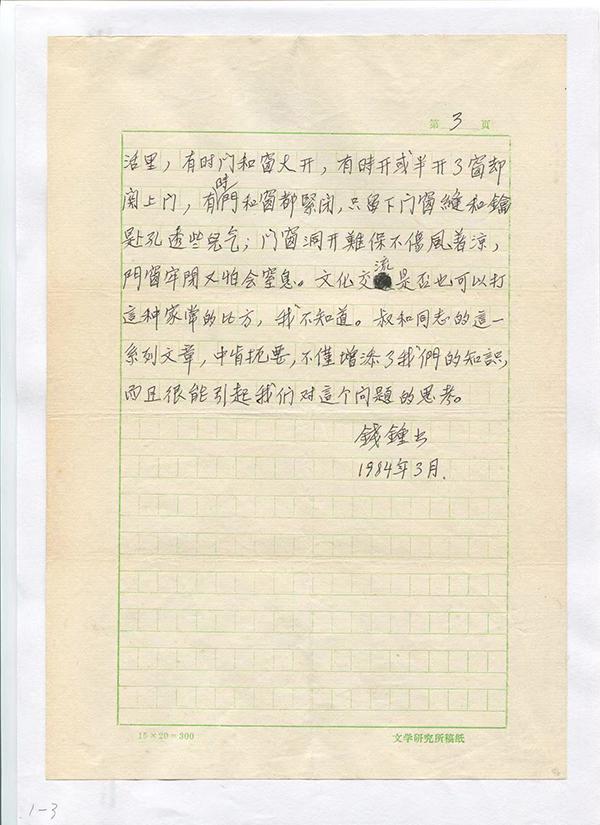 第 3 页
活里，有时门和窗大开，有時开或半开了窗却
関上门，有時門和窗都緊闭，只留下门窗縫和鑰
匙孔透些兒气；门窗洞开難保不傷風着凉，
門窗牢閉又怕会窒息。文化交流是否也可以打
這种家常的比方，我不知道。叔和同志的這一
系列文章，中肯扼要，不僅增添了我們的知識，
而且很能引起我们对這个问題的思考。
錢鍾书
1984年3月.
15×20=300
文学研究所稿紙
1-3